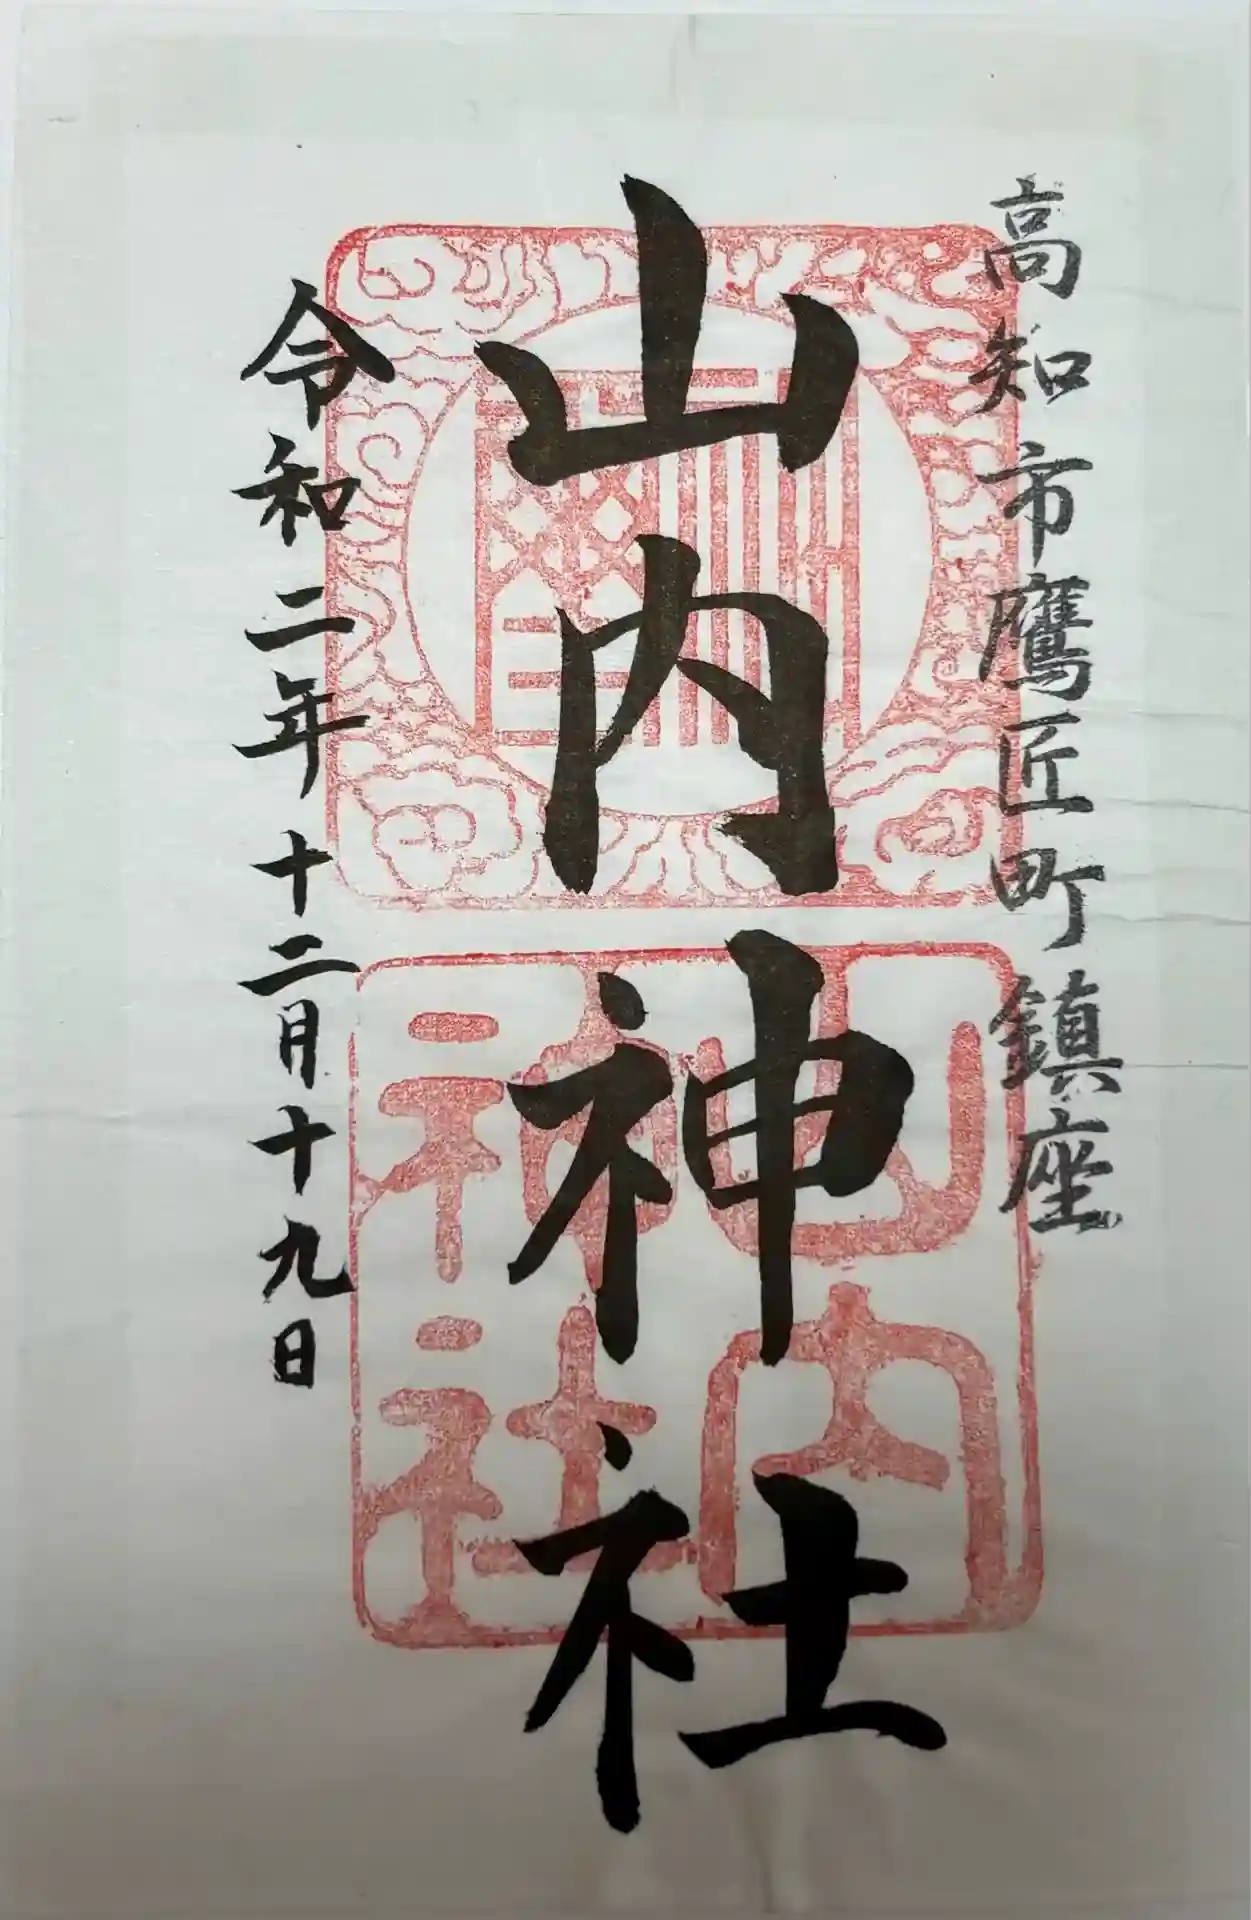 高知市鷹匠町鎮座
山内神社
令和二年十二月十九日
山内
神社